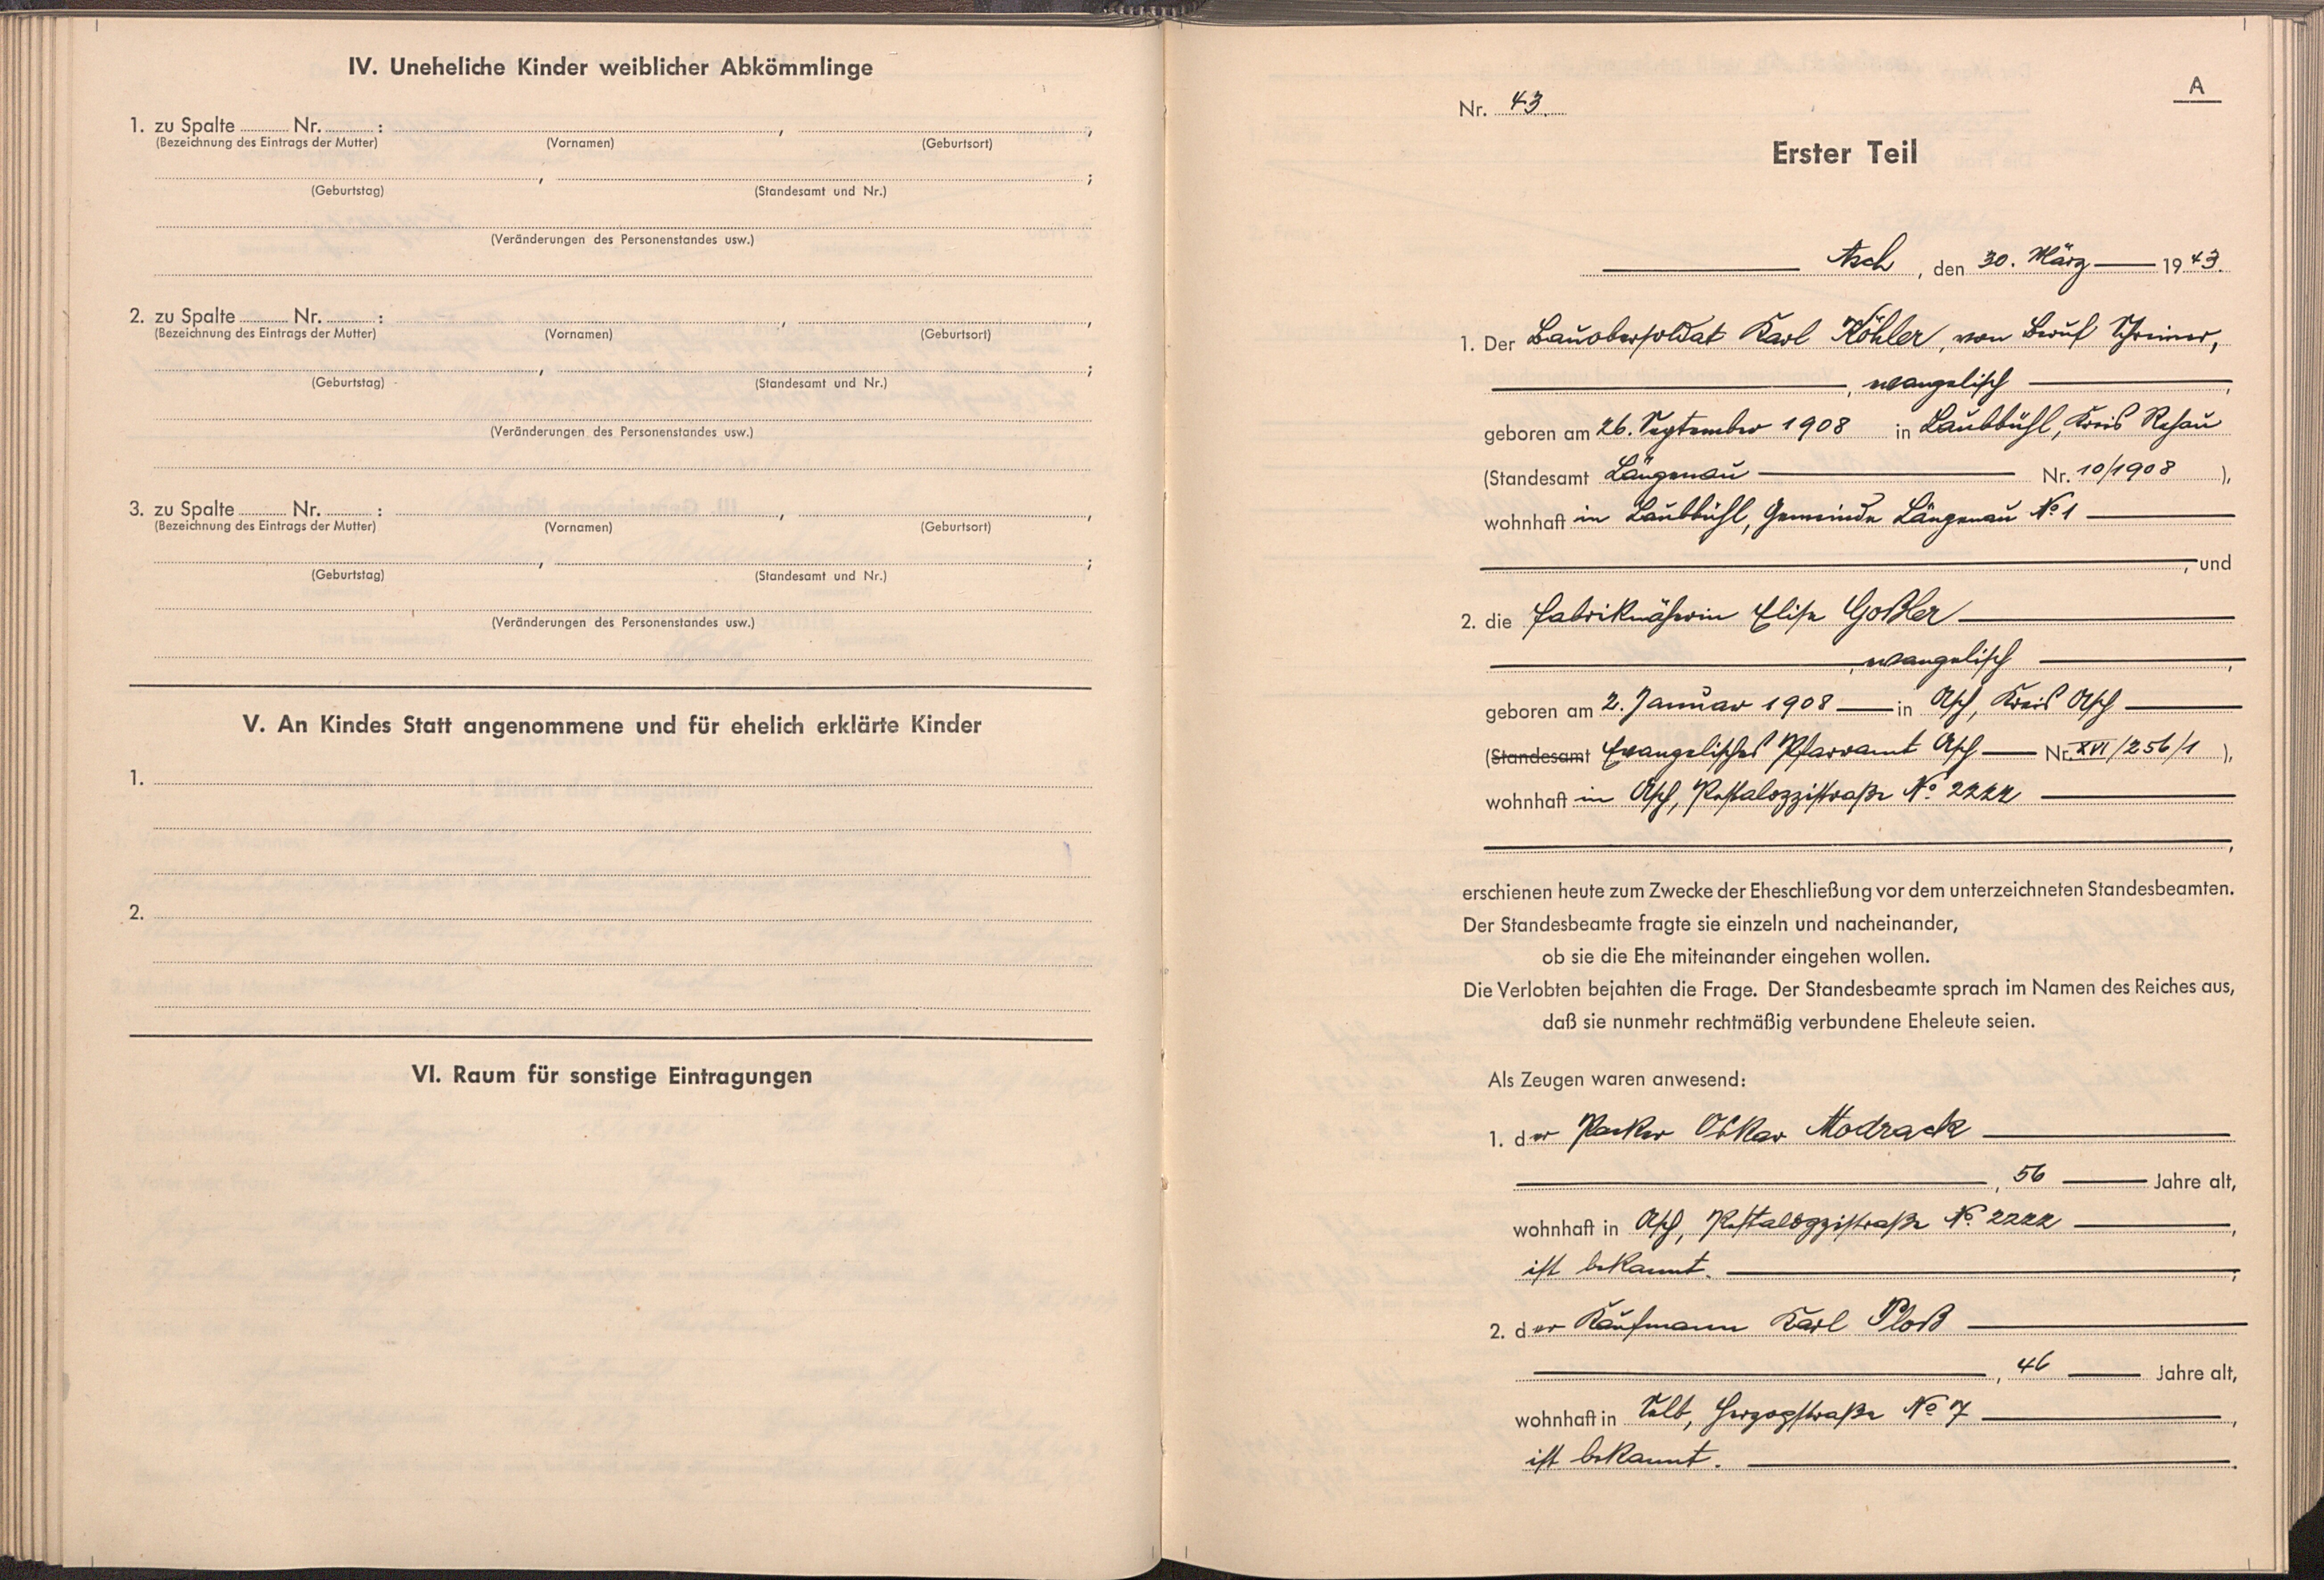 IV. Uneheliche Kinder weiblicher Abkömmlinge
1. zu Spalte Nr. : , ,
(Bezeichnung des Eintrags der Mutter) (Vornamen) (Geburtsort)
, ;
(Geburtstag) (Standesamt und Nr.)
(Veränderungen des Personenstandes usw.)
2. zu Spalte Nr. : , ,
(Bezeichnung des Eintrags der Mutter) (Vornamen) (Geburtsort)
, ;
(Geburtstag) (Standesamt und Nr.)
(Veränderungen des Personenstandes usw.)
3. zu Spalte Nr. : , ,
(Bezeichnung des Eintrags der Mutter) (Vornamen) (Geburtsort)
, ;
(Geburtstag) (Standesamt und Nr.)
(Veränderungen des Personenstandes usw.)
V. An Kindes Statt angenommene und für ehelich erklärte Kinder
1.
2.
VI. Raum für sonstige Eintragungen
A
Nr. 43.
Erster Teil
Asch, den 30. März 1943.
1. Der Bauobersoldat Karl Köhler, von Beruf Schreiner,
, evangelisch ,
geboren am 26. September 1908 in Laubbühl, Kreis Rehau
(Standesamt Längenau Nr. 10/1908 ),
wohnhaft in Laubbühl, Gemeinde Längenau No 1
, und
2. die Fabriknäherin Elise Goßler
, evangelisch ,
geboren am 2. Januar 1908 in Asch, Kreis Asch
(Standesamt Evangelisches Pfarramt Asch Nr. XVI/256/1 ),
wohnhaft in Asch, Pestalozzistraße No. 2222
,
erschienen heute zum Zwecke der Eheschließung vor dem unterzeichneten Standesbeamten.
Der Standesbeamte fragte sie einzeln und nacheinander,
ob sie die Ehe miteinander eingehen wollen.
Die Verlobten bejahten die Frage. Der Standesbeamte sprach im Namen des Reiches aus,
daß sie nunmehr rechtmäßig verbundene Eheleute seien.
Als Zeugen waren anwesend:
1. der Packer Oskar Modrack
, 56 Jahre alt,
wohnhaft in Asch, Pestalozzistraße No. 2222 ,
ist bekannt. ;
2. der Kaufmann Karl Ploß
, 46 Jahre alt,
wohnhaft in Selb, Herzogstraße No 7 ,
ist bekannt. .